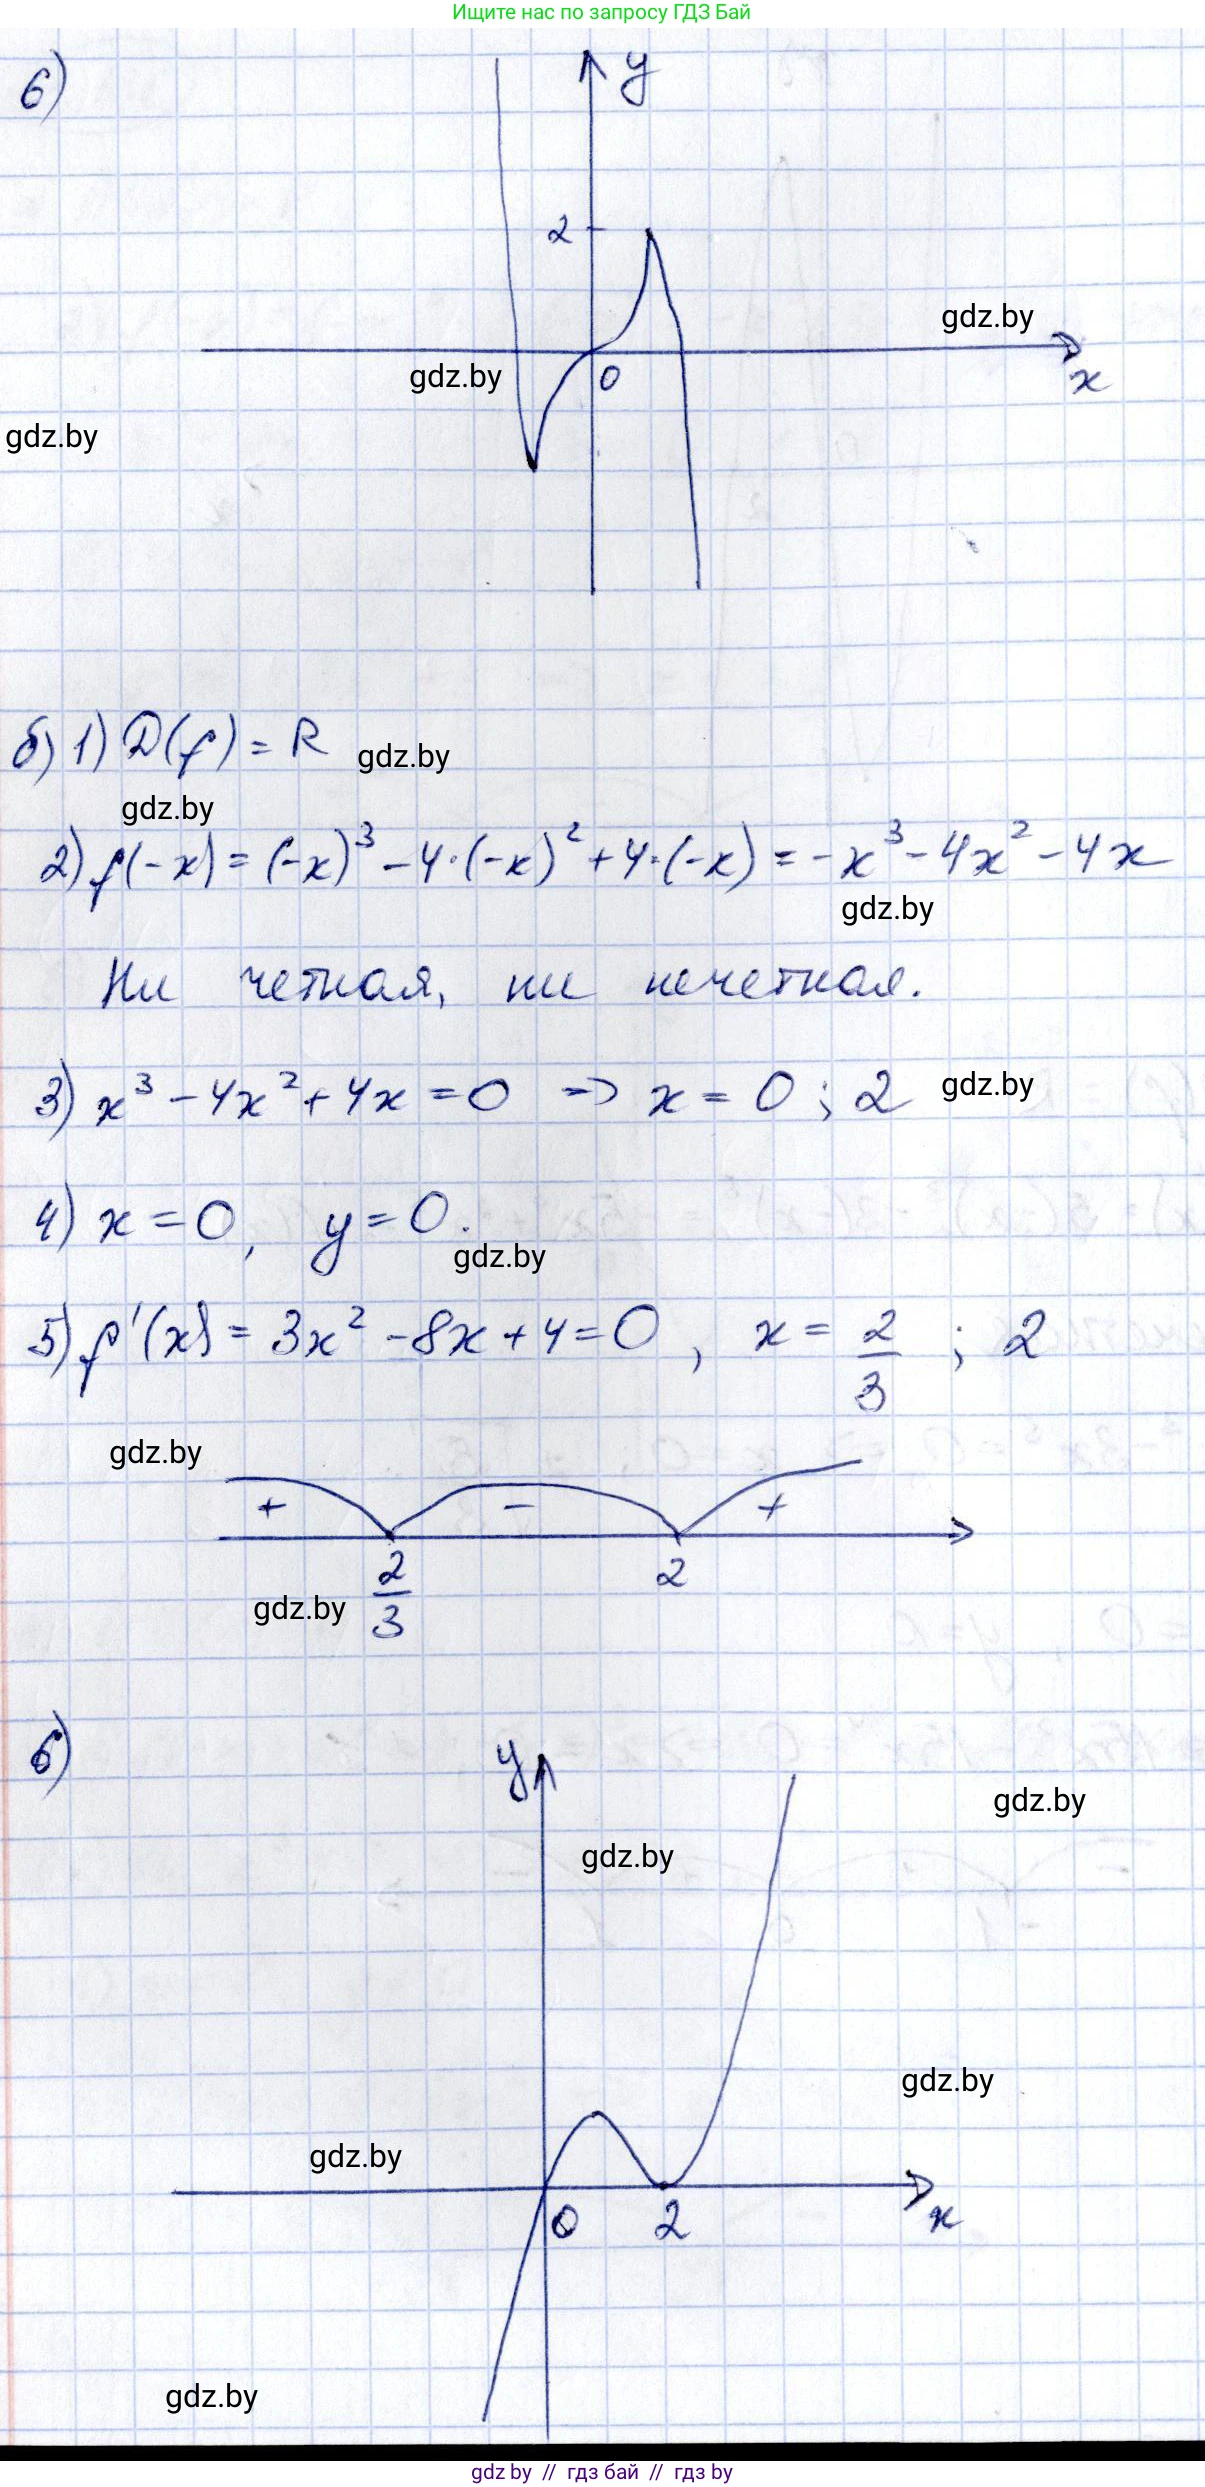 Ищите нас по запросу ГДЗ Бай
6)
y
2
gdz.by
gdz.by
0
x
gdz.by
б) 1) D(f) = R
gdz.by
gdz.by
2) f(-x) = (-x)³ - 4·(-x)² + 4·(-x) = -x³ - 4x² - 4x
gdz.by
Ни четная, ни нечетная.
3) x³ - 4x² + 4x = 0 => x = 0 ; 2
gdz.by
4) x = 0, y = 0.
gdz.by
5) f'(x) = 3x² - 8x + 4 = 0, x = 2/3 ; 2
gdz.by
+ - +
2/3 2
gdz.by
6)
y
gdz.by
gdz.by
gdz.by
gdz.by
0 2 x
gdz.by
gdz by // гдз бай // гдз by